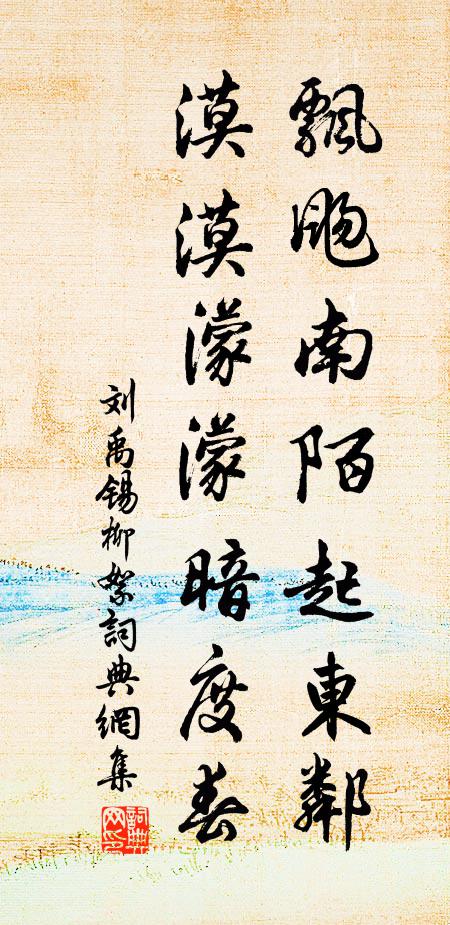 飄颺南陌起東鄰
漠漠濛濛暗度春
刘禹锡柳絮詞典網集